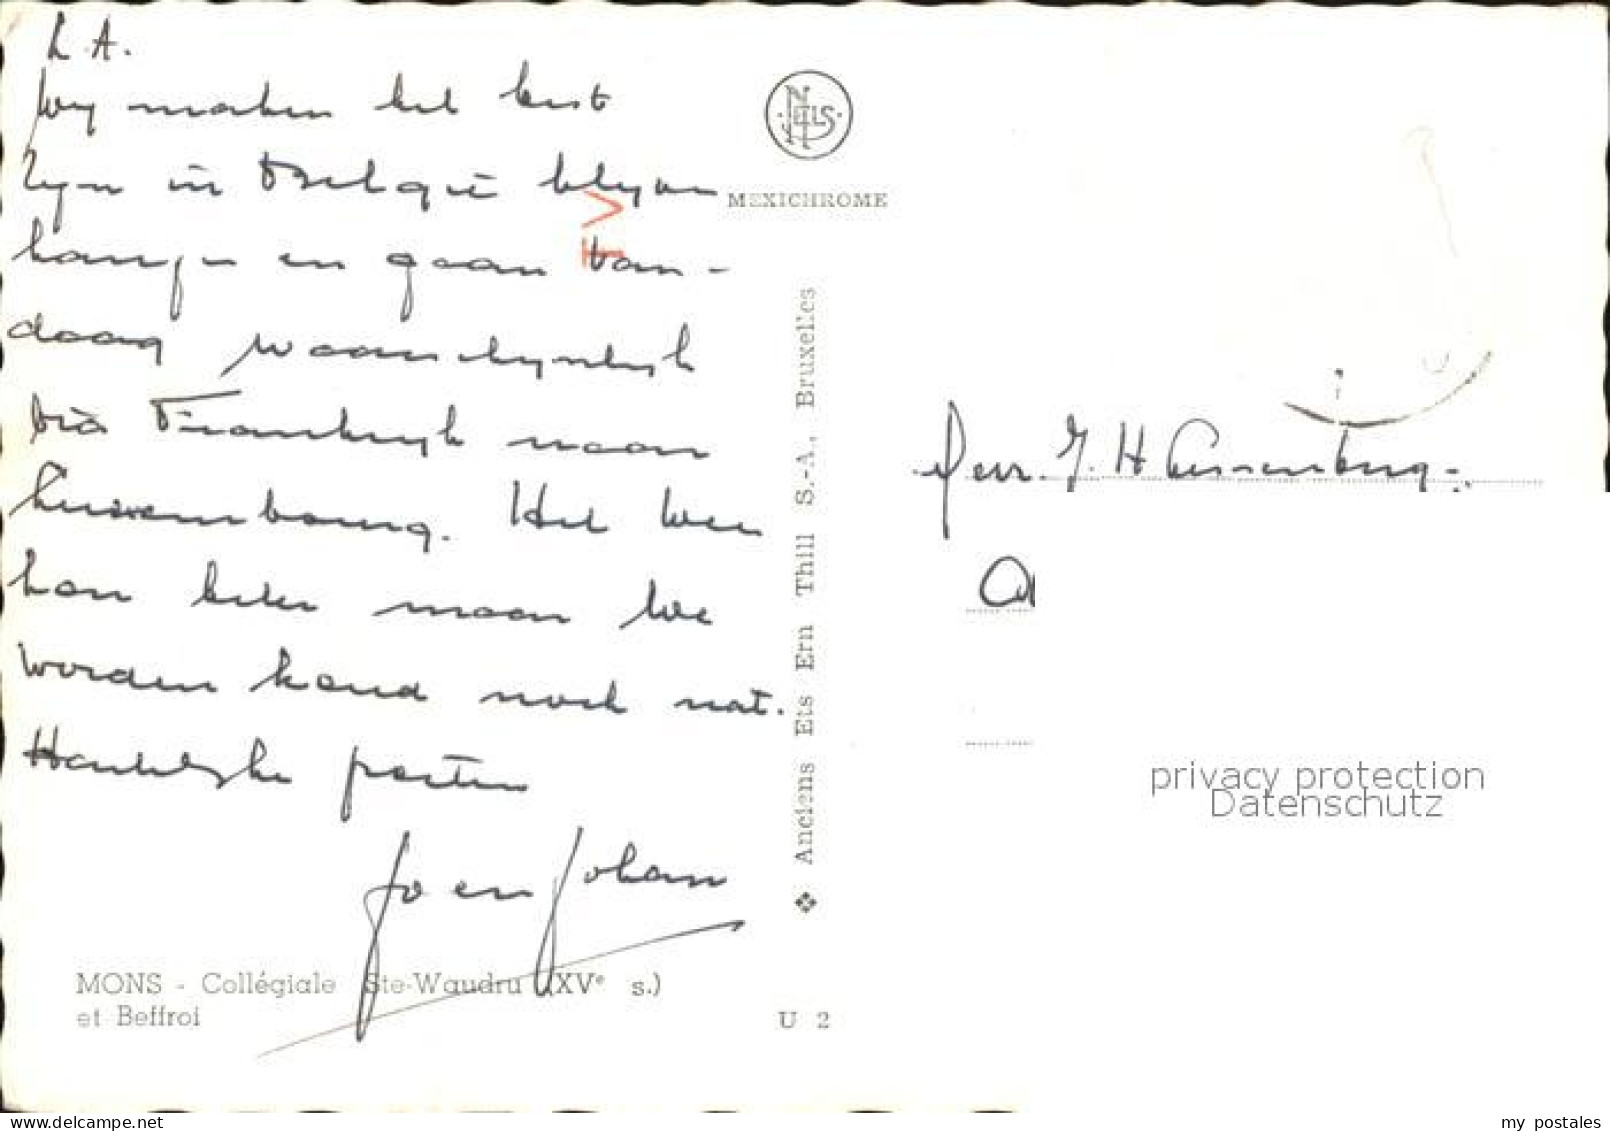 L A.
Wij maken het best
Zijn in België blijven
hangen en gaan van-
daag waarschijnlijk
via Frankrijk naar
Luxembourg. Het weer
kan beter maar we
worden koud noch nat.
Hartelijke groeten
Jo en Johan
MONS - Collégiale Ste-Waudru (XVe s.)
et Beffroi
NELS
MEXICHROME
Anciens Ets Ern Thill S.-A., Bruxelles
U 2
J. H
privacy protection
Datenschutz
www.delcampe.net
my postales